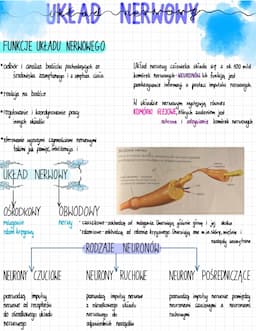 UKŁAD NERWOWY
FUNKCJE UKŁADU NERWOWEGO
•odbiór i analiza bodźców pochodzących ze
środowiska zewnętrznego i z wnętrza ciała
•reakcja na bodźce
•regulowanie i koordynowanie pracy
innych układów
•sterowanie wyższymi czynnościami nerwowymi
takimi jak pamięć, inteligencja
Układ nerwowy człowieka składa się z ok. 100 mld
komórek nerwowych-NEURONÓW. Ich funkcją jest
przekazywanie informacji w postaci impulsów nerwowych.
W układzie nerwowym występują również
KOMÓRKI GLEJOWE, których zadaniem jest
ochrona i odżywianie komórek nerwowych
UKŁAD NERWOWY
OŚRODKOWY
OBWODOWY
mózgowie
rdzeń kręgowy
nerwy
RODZAJE NEURONÓW:
NEURONY CZUCIOWE
NEURONY RUCHOWE
NEURONY POŚREDNICZĄCE
przewodzą impulsy
nerwowe od receptorów
do ośrodkowego układu
nerwowego
przewodzą impulsy nerwowe
z ośrodkowego układu
nerwowego do
odpowiednich narządów
przewodzą impulsy nerwowe pomiędzy
neuronami czuciowymi a neuronami
ruchowymi